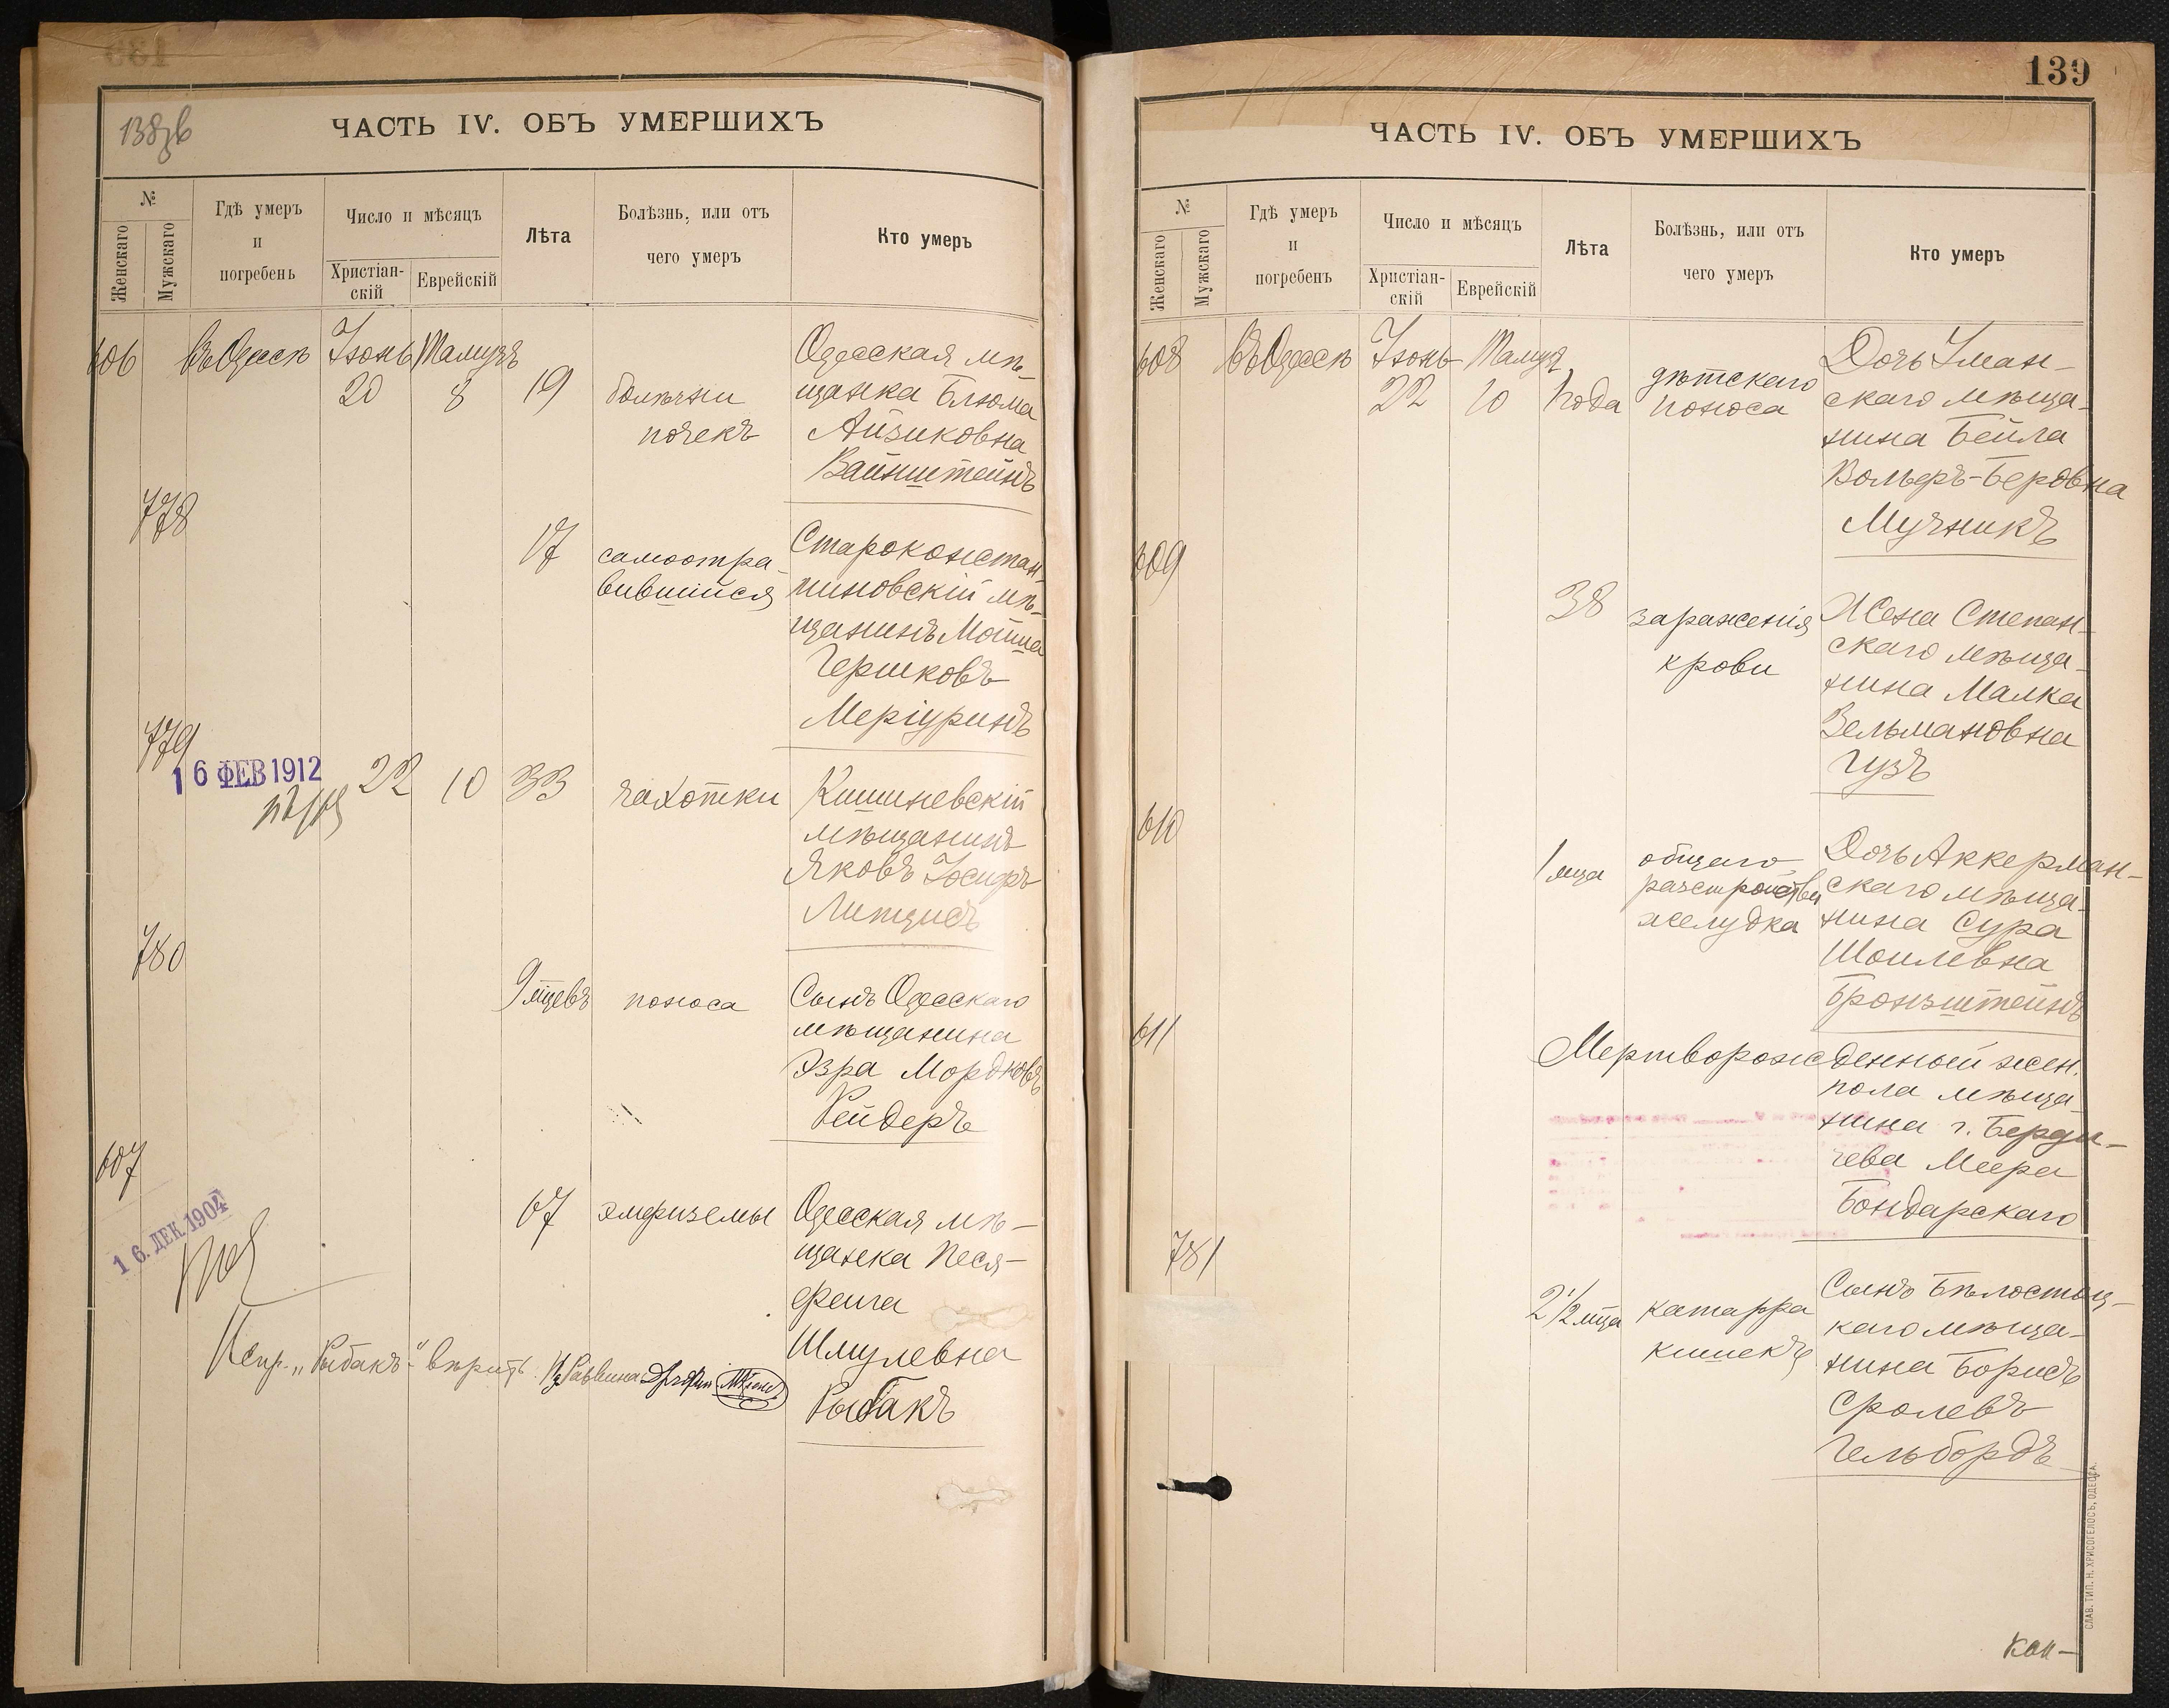 138зв
ЧАСТЬ IV. ОБЪ УМЕРШИХЪ
№
Женскаго
Мужскаго
Гдѣ умеръ
и
погребенъ
Число и мѣсяцъ
Христіан-
скій
Еврейскій
Лѣта
Болѣзнь, или отъ
чего умеръ
Кто умеръ
606 въ Одессѣ Іюнь Тамузъ
20 8 19
болѣзни
почекъ
Одесская мѣ-
щанка Блюма
Айзиковна
Вайнштейнъ
778
17
самоотра-
вившійся
Староконстан-
тиновскій мѣ-
щанинъ Мойша
Гершковъ
Меріуринъ
779
16 ФЕВ 1912
22 10 33
чахотки
Кишиневскій
мѣщанинъ
Яковъ Іосифъ
Липцисъ
780
9 мцевъ
поноса
Сынъ Одесскаго
мѣщанина
Эзра Мордковъ
Рейдеръ
607
16. ДЕК. 1904
67
эмфиземы
Одесская мѣ-
щанка Песя-
фейга
Шмулевна
Рыбакъ
Испр. „Рыбакъ" вѣрить
Раввина
139
ЧАСТЬ IV. ОБЪ УМЕРШИХЪ
№
Женскаго
Мужскаго
Гдѣ умеръ
и
погребенъ
Число и мѣсяцъ
Христіан-
скій
Еврейскій
Лѣта
Болѣзнь, или отъ
чего умеръ
Кто умеръ
608 Въ Одессѣ Іюнь Тамузъ
22 10 1 года
дѣтскаго
поноса
Дочь Уман-
скаго мѣща-
нина Бейла
Вольфъ-Беровна
Мучникъ
609
38
зараженія
крови
Жена Степан-
скаго мѣща-
нина Малка
Зельмановна
Гузъ
610
1 мца
общаго
разстройства
желудка
Дочь Аккерман-
скаго мѣща-
нина Сура
Шоилевна
Бронштейнъ
611
Мертворожденный жен.
пола мѣща-
нина г. Берди-
чева Меера
Бондарскаго
781
2 1/2 мца
катарра
кишекъ
Сынъ Бѣлостоц-
каго мѣща-
нина Борисъ
Сролевъ
Гельбордъ
СЛАВ. ТИП. Н. ХРИСОГЕЛОСЪ, ОДЕССА.
Кон-